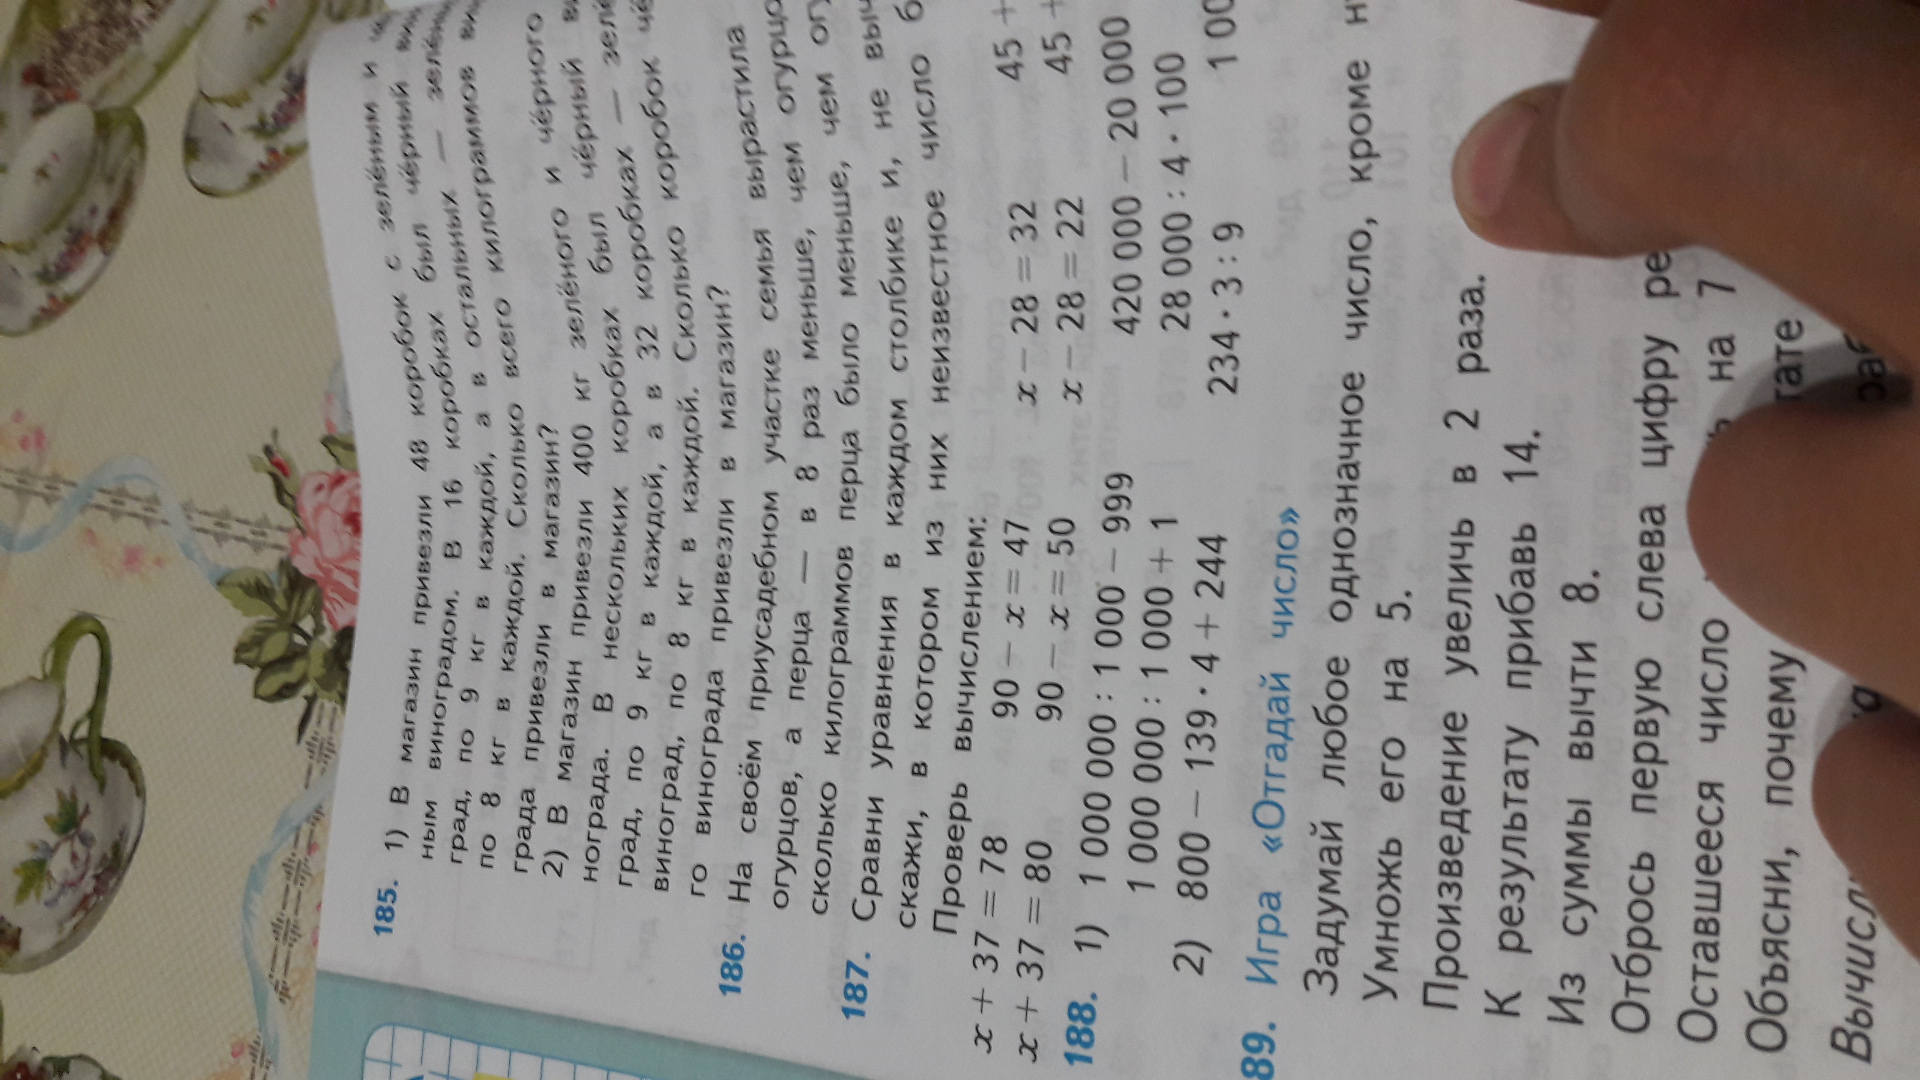 185. 1) В магазин привезли 48 коробок с зелёным и
ным виноградом. В 16 коробках был чёрный
град, по 9 кг в каждой, а в остальных —
по 8 кг в каждой. Сколько всего килограммов
града привезли в магазин?
2) В магазин привезли 400 кг зелёного и чёрного
нограда. В нескольких коробках был чёрный
град, по 9 кг в каждой, а в 32 коробках —
виноград, по 8 кг в каждой. Сколько коробок
го винограда привезли в магазин?
186. На своём приусадебном участке семья вырастила
огурцов, а перца — в 8 раз меньше, чем
сколько килограммов перца было меньше, чем
187. Сравни уравнения в каждом столбике и, не
скажи, в котором из них неизвестное число
Проверь вычислением:
x + 37 = 78 90 − x = 47 x − 28 = 32 45 +
x + 37 = 80 90 − x = 50 x − 28 = 22 45 +
188. 1) 1 000 000 : 1 000 − 999 420 000 − 20 000
1 000 000 : 1 000 + 1 28 000 : 4 · 100
2) 800 − 139 · 4 + 244 234 · 3 : 9
89. Игра «Отгадай число»
Задумай любое однозначное число, кроме
Умножь его на 5.
Произведение увеличь в 2 раза.
К результату прибавь 14.
Из суммы вычти 8.
Отбрось первую слева цифру
Оставшееся число на 7
Объясни, почему